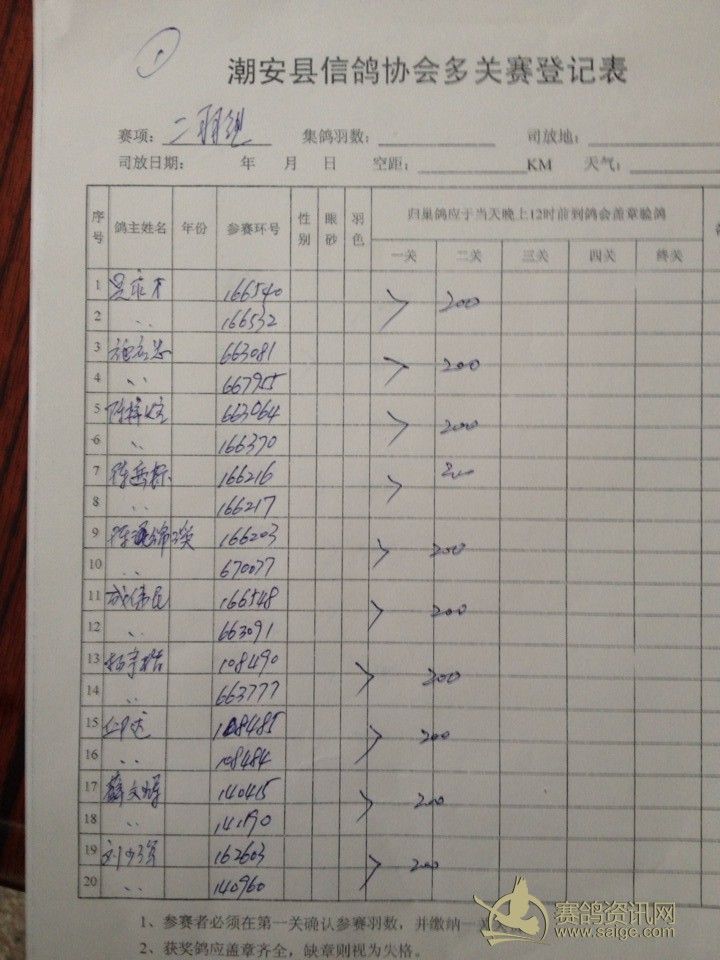 1
潮安县信鸽协会多关赛登记表
赛项: 二羽组 集鸽羽数: 司放地:
司放日期: 年 月 日 空距: KM 天气:
序号 鸽主姓名 年份 参赛环号 性别 眼砂 羽色 归巢鸽应于当天晚上12时前到鸽会盖章验鸽
一关 二关 三关 四关 终关
1 166540 200
2 〃 166532
3 663081 200
4 〃 667955
5 663064 200
6 〃 166370
7 166216 200
8 〃 166217
9 166203 200
10 〃 670077
11 166548 200
12 〃 663091
13 108490 200
14 〃 663777
15 108485 200
16 〃 108484
17 薛文 140415 200
18 〃 141190
19 刘少 162603 200
20 〃 140960
1、参赛者必须在第一关确认参赛羽数,并缴纳一
2、获奖鸽应盖章齐全,缺章则视为失格。
赛鸽资讯网
www.saigc.com